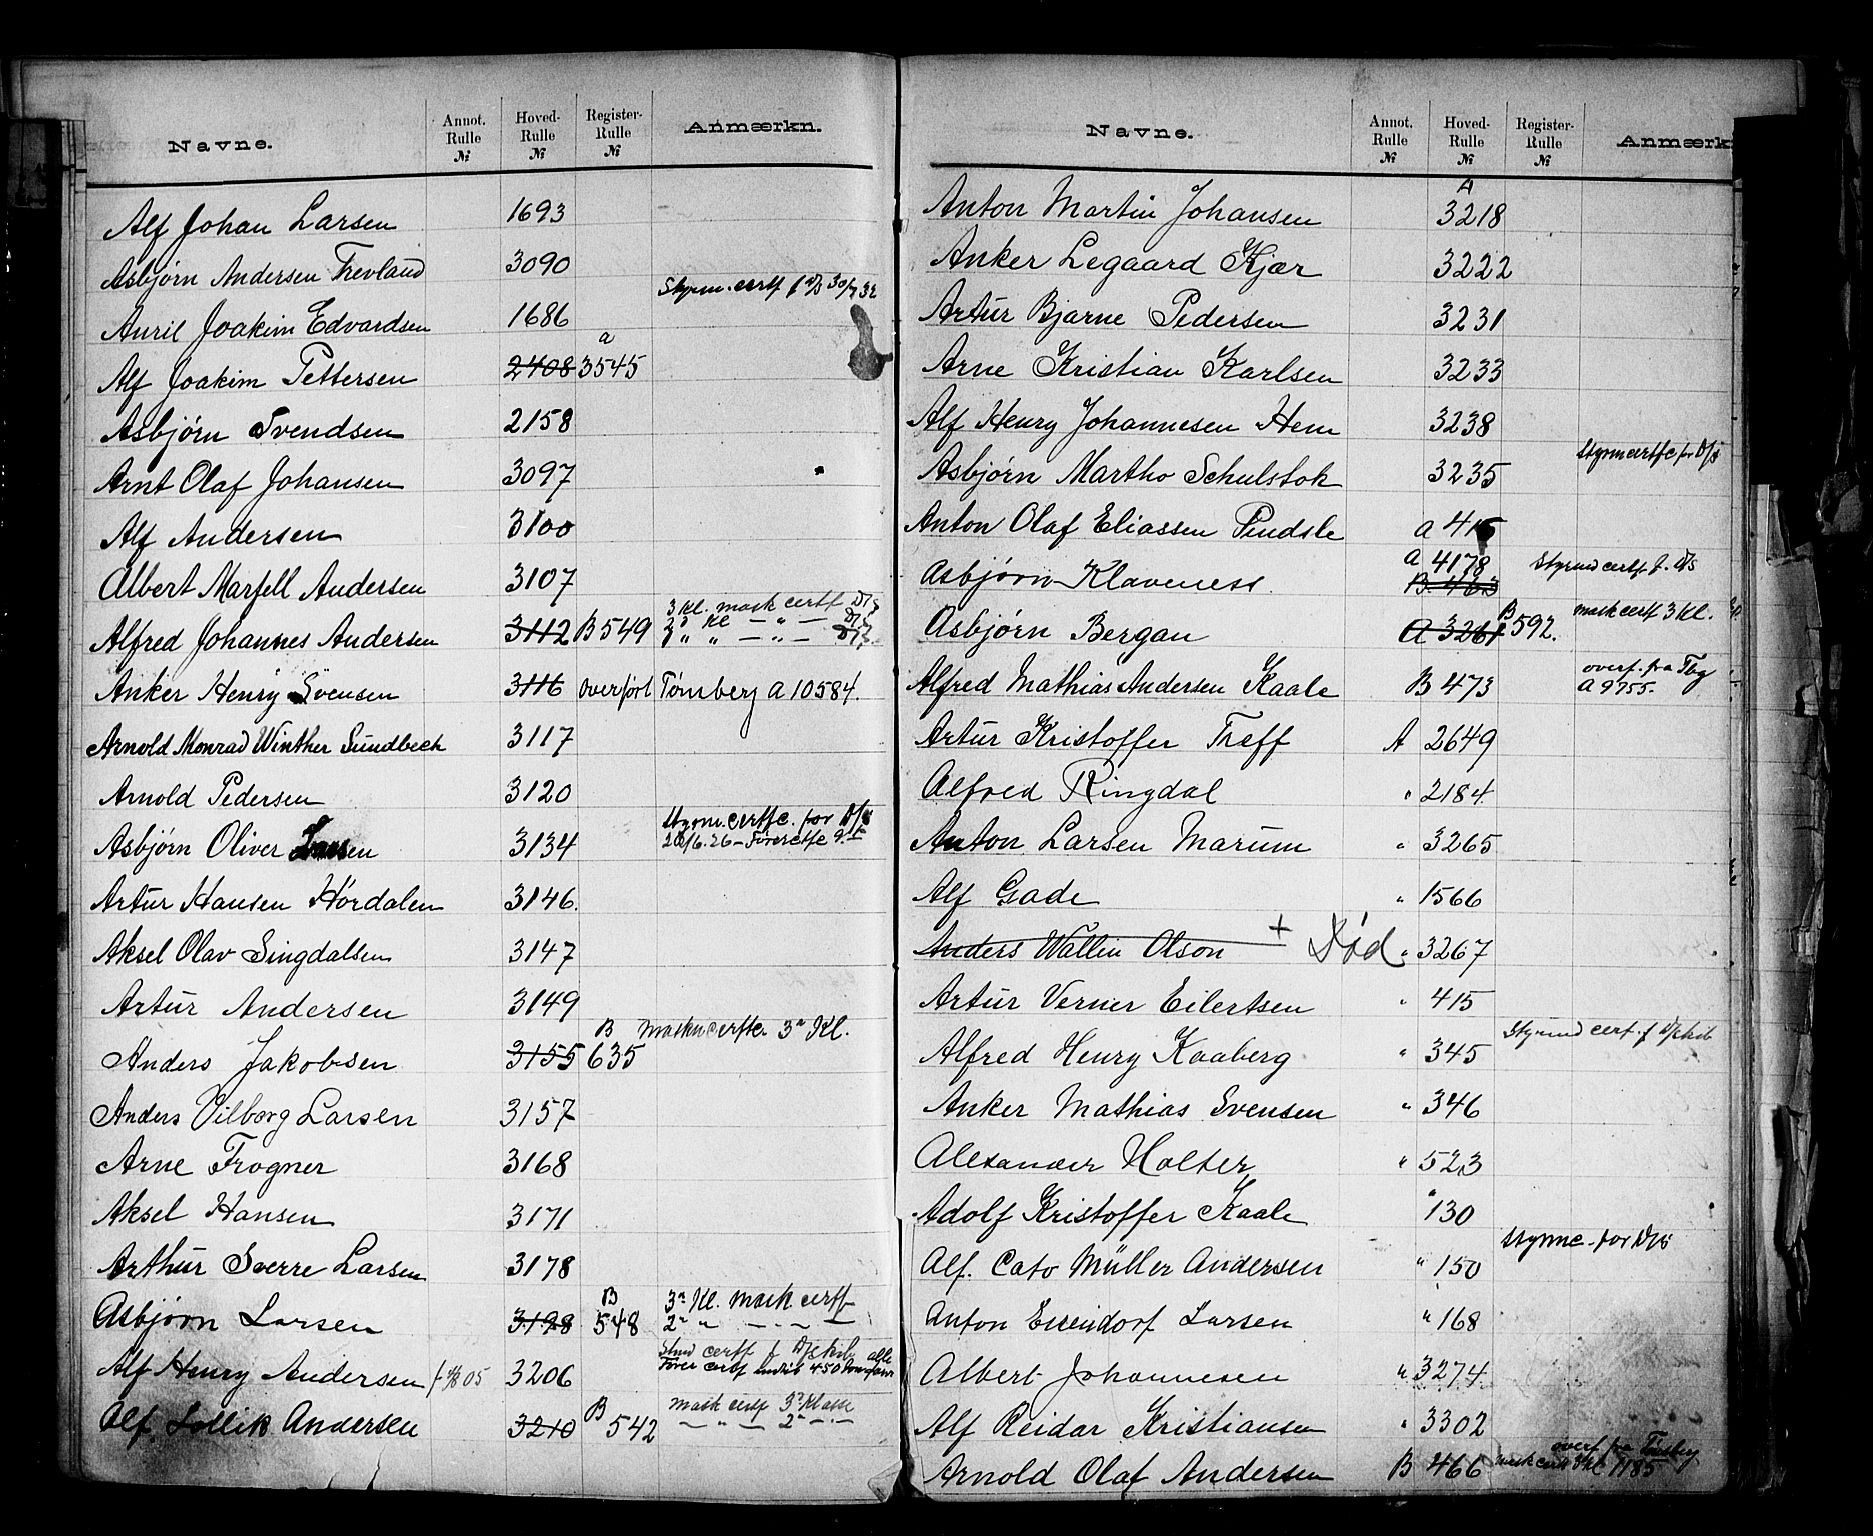 Navne. Annot. Rulle № Hoved-Rulle № Register-Rulle № Anmærkn.
Alf Johan Larsen 1693
Asbjørn Andersen Trevland 3090
Auril Joakim Edvardsen 1686 Styrm. certf f D/S 30/7 32
Alf Joakim Pettersen 2408 a 3545
Asbjørn Svendsen 2158
Arnt Olaf Johansen 3097
Alf Andersen 3100
Albert Marfell Andersen 3107
Alfred Johannes Andersen 3112 B 549 3 Kl. mask certf
Anker Henry Svensen 3116 overført Tønsberg A 10584.
Arnold Monrad Winther Sundbeck 3117
Arnold Pedersen 3120
Asbjørn Oliver Larsen 3134 Styrm. certfc. for D/S
20/6.26 – Førerctfc
Artur Hansen Hørdalen 3146.
Aksel Olav Singdalsen 3147
Artur Andersen 3149
Anders Jakobsen 3155 B 635 Maskncertfc. 3die Kl.
Anders Vilborg Larsen 3157
Arne Frogner 3168
Aksel Hansen 3171
Arthur Sverre Larsen 3178
Asbjørn Larsen 3198 B 548 3. Kl. mask certf
2. " — " —
Alf Henry Andersen 05 3206 certf f D/skib alle
Fører certf indtil 450
Alf Sollik Andersen 3210 B 542 mask certf 3. Klasse
— " — 2. —
Navne. Annot. Rulle № Hoved-Rulle № Register-Rulle № Anmærk
Anton Martin Johansen A 3218
Anker Legaard Kjær 3222
Artur Bjarne Pedersen 3231
Arne Kristian Karlsen 3233
Alf Henry Johannesen Hem 3238
Asbjørn Martho Schulstok 3235 Styrmcertfc for D/S
Anton Olaf Eliassen Pindsle a 415
Asbjørn Klaveness. a 4178 B. 463 Styrmd certf f. D/S
Asbjørn Bergan A 3261 B 592. mask certf 3 Kl.
Alfred Mathias Andersen Kaale B 473 overf. fra Tbg
A 9755.
Artur Kristoffer Treff A 2649
Alfred Ringdal " 2184
Anton Larsen Marum " 3265
Alf Gade " 1566
Anders Wallin Olson + Død " 3267
Artur Verner Eilertsen " 415
Alfred Henry Kaaberg " 345 Styrmd cert. f D/skib
Anker Mathias Svensen " 346
Alexander Holter " 523
Adolf Kristoffer Kaale " 130
Alf. Cato Müller Andersen " 150 Styrmc. for D/S
Anton Eisendorf Larsen " 168
Albert Johannesen " 3274
Alf Reidar Kristiansen " 3302
Arnold Olaf Andersen B 466 overf fra Tønsberg
mask cert 3 Kl 1185